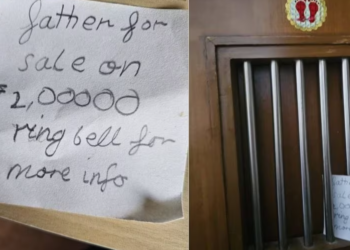 father for
sale on
2,00000
ring bell for
more info